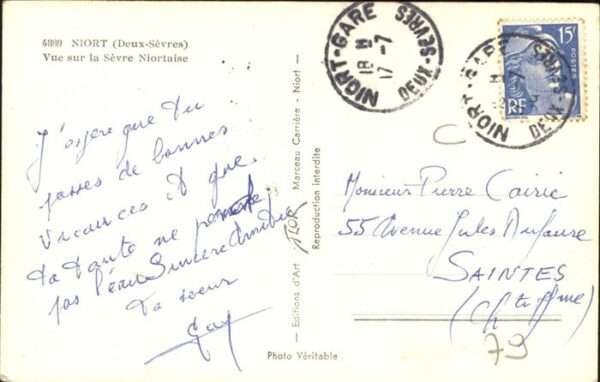 4099 NIORT (Deux-Sèvres)
Vue sur la Sèvre Niortaise
NIORT-GARE
18 H
17 -7
DEUX-SEVRES
15F
POSTES
RF
NIORT-GARE
DEUX-SEVRES
J'espère que Tu
passes de bonnes
vacances et que
ta ne
pas Sincère Amitié
Ta soeur
Monsieur Pierre
55 Avenue Jules Dufaure
SAINTES
(Chte Mme)
79
Editions d'Art Marceau Carrière - Niort -
Reproduction interdite
Photo Véritable